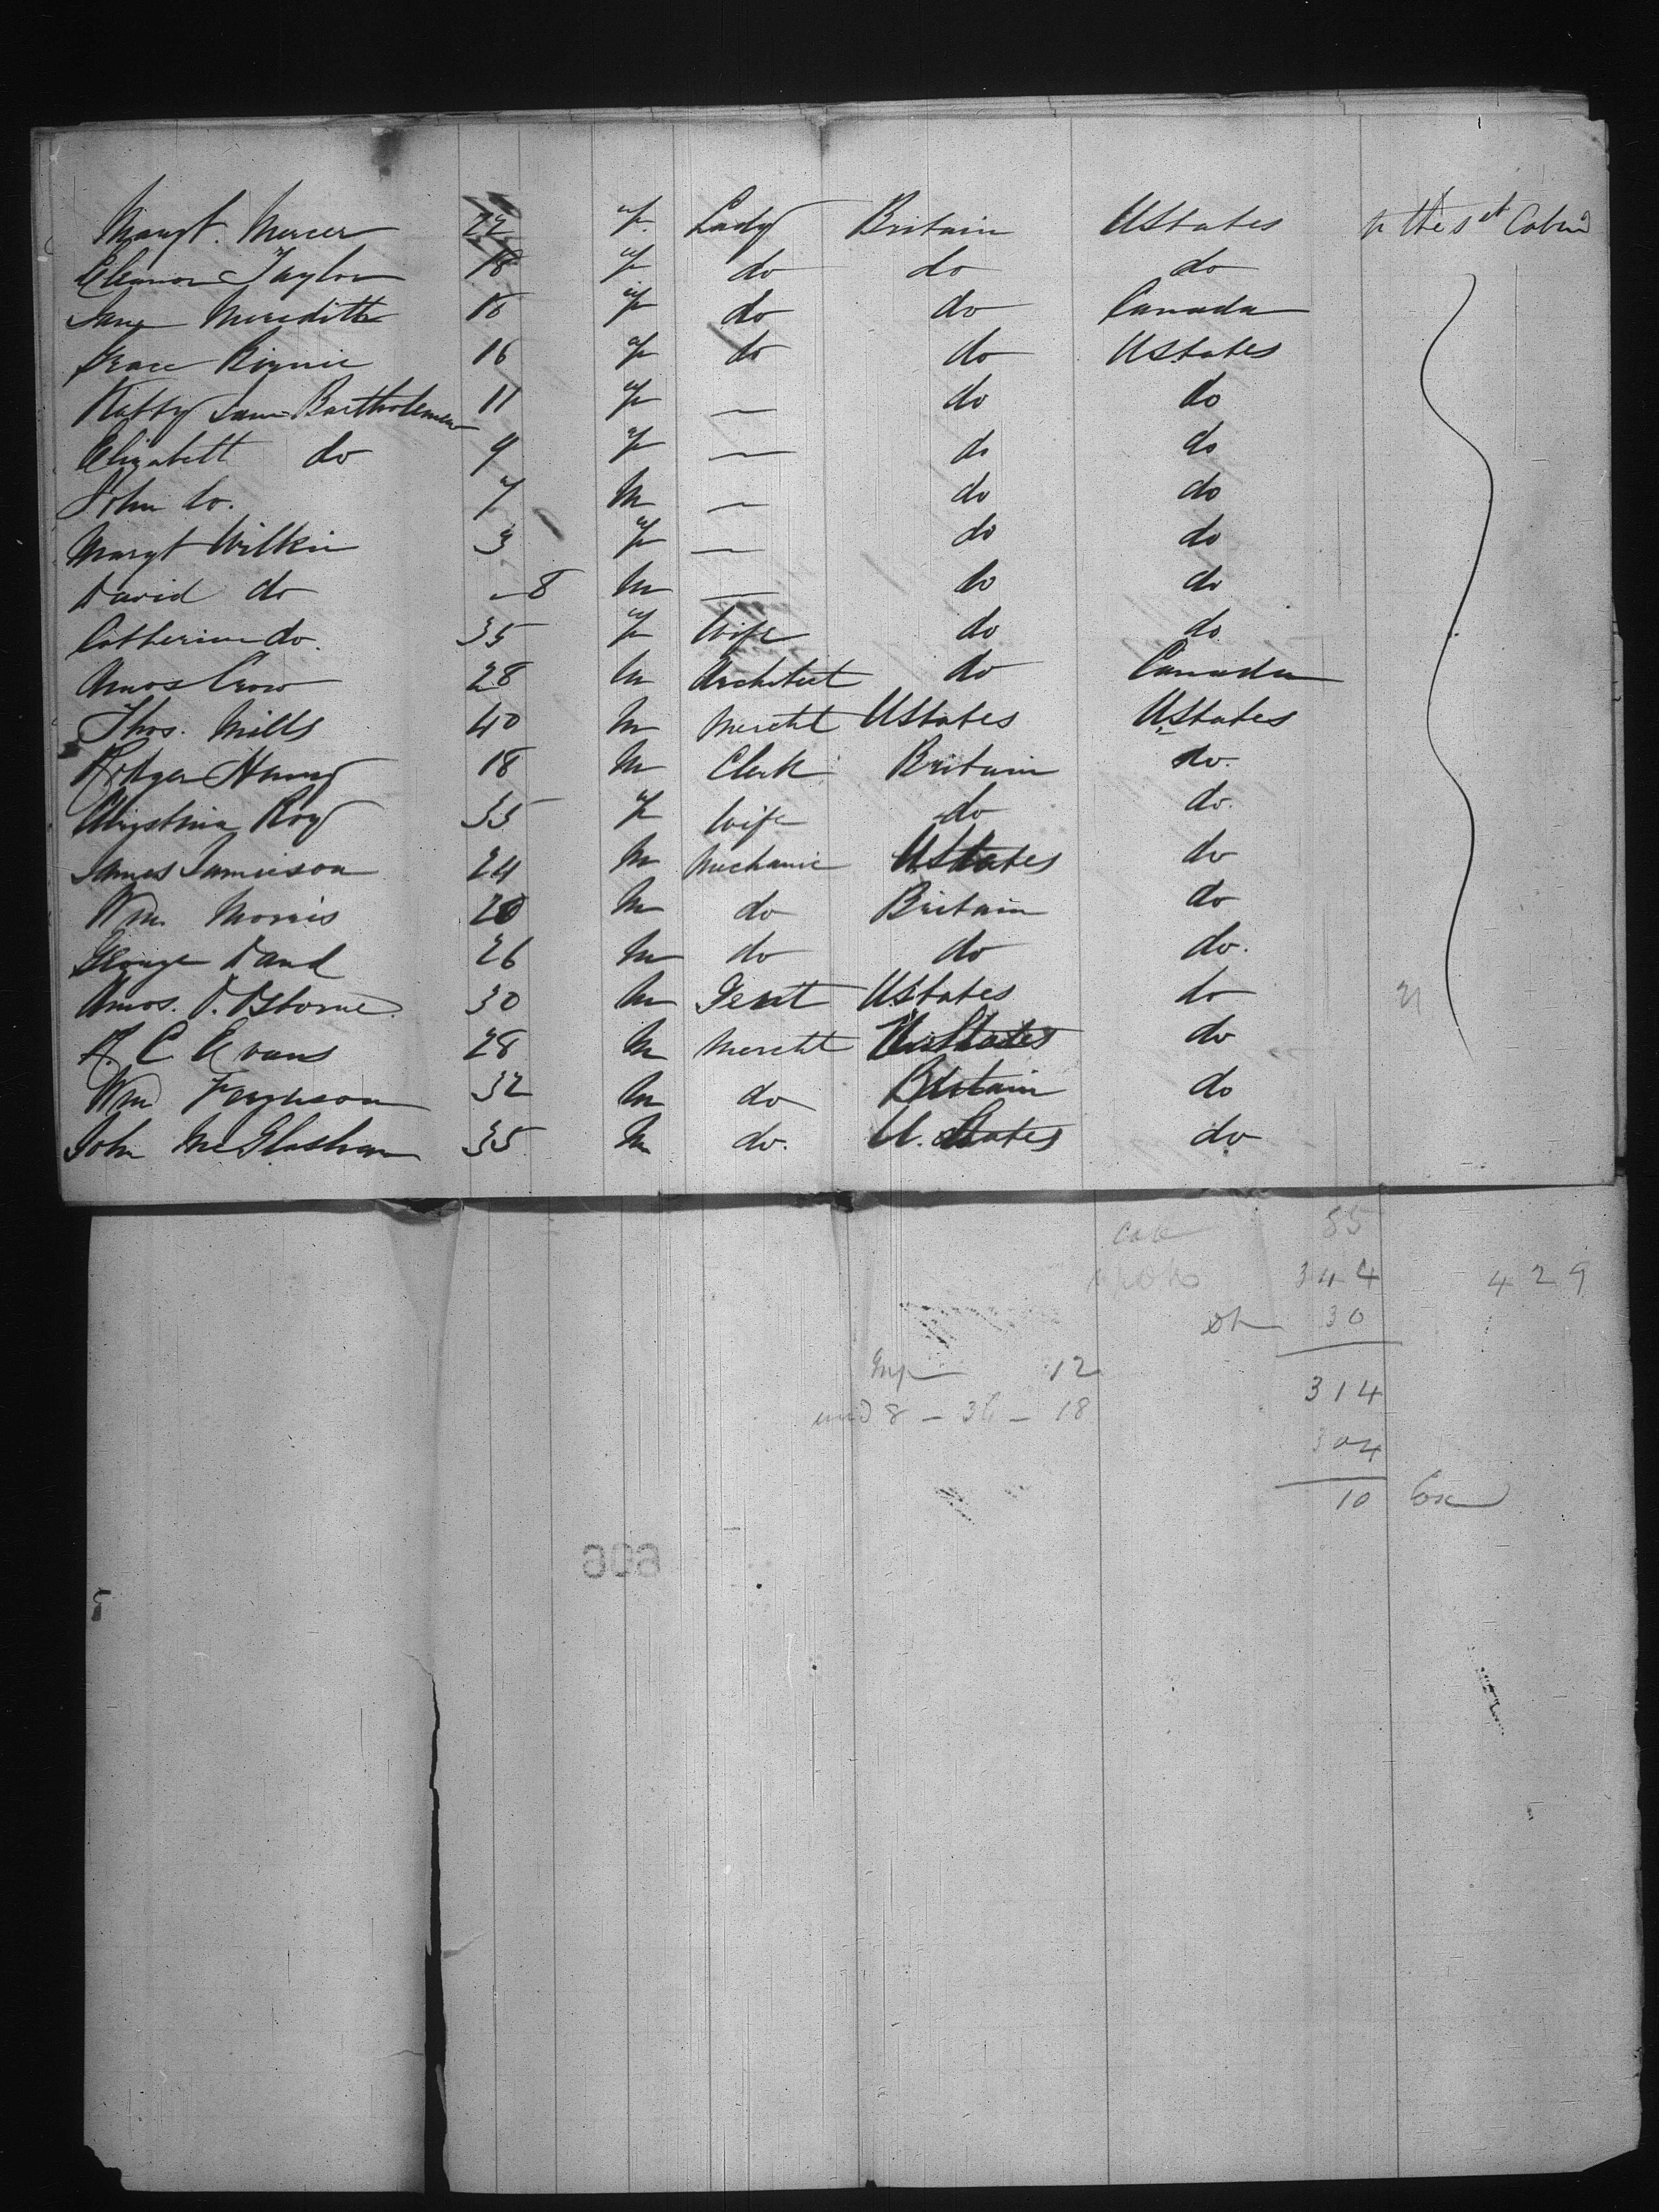 Margt. Mercer 22 f. Lady Britain UStates
Eleanor Taylor 18 f do do do
Jane Meredith 18 f do do Canada
Grace Birnie 16 f do do UStates
Kathy Jane Bartholemew 11 f — do do
Elizabeth do 9 f — do do
John do. 7 M — do do
Margt Wilkin 3 f — do do
David do - 8 M — do do
Catherine do. 35 f Wife do do
Amos Crow 28 M Architect do Canada
Thos. Mills 40 M Mercht UStates UStates
Rodger Henry 18 M Clerk Britain do.
Christina Roy 35 f Wife do do.
James Jamieson 24 M Mechanic UStates do
Wm. Morris 20 M do Britain do
George Dand 26 M do do do.
Amos. D. Osborne. 30 M Gent UStates do
A. C Evans 28 M Mercht U. States do
Wm Ferguson 32 M do Britain do
John McGlashan 35 M. do. U. States do
Cab 85
344 429
30
12
314
und 8 - 36 - 18
304
10